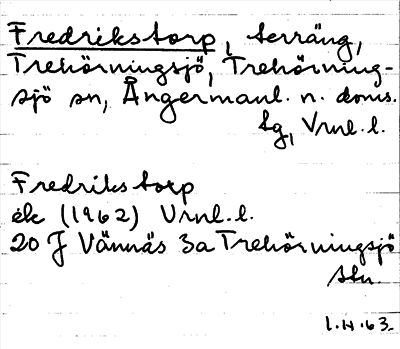 Fredrikstorp, terräng,
Trehörningsjö, Trehörning-
sjö sn, Ångermanl. n. doms.
tg, Vrnl. l.
Fredrikstorp
ek (1962) Vrnl. l.
20 J Vännäs 3a Trehörningsjö
stn.
1.H.63.